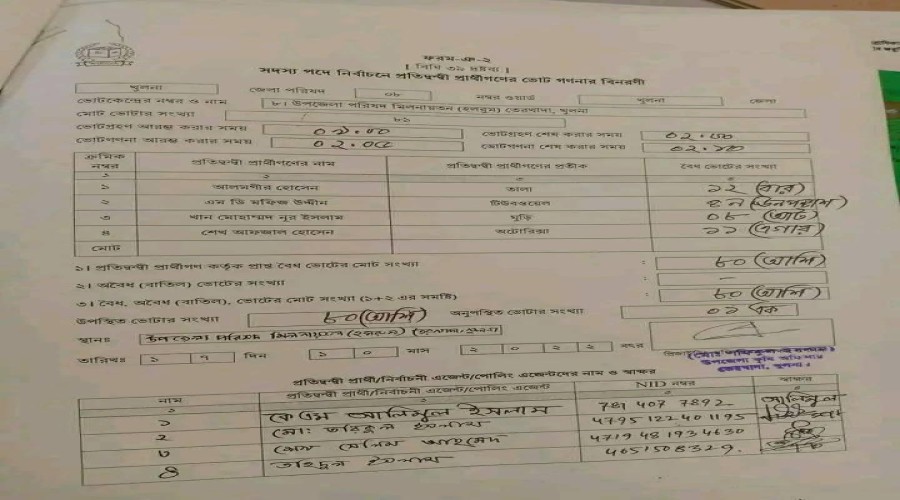 ফরম-ঞ-২
[ বিধি ৩৯ দ্রষ্টব্য ]
সদস্য পদে নির্বাচনে প্রতিদ্বন্দ্বী প্রার্থীগণের ভোট গণনার বিবরণী
খুলনা জেলা পরিষদ ০৮ নম্বর ওয়ার্ড খুলনা জেলা
ভোটকেন্দ্রের নম্বর ও নাম ৮। উপজেলা পরিষদ মিলনায়তন (হলরুম) তেরখাদা, খুলনা
মোট ভোটার সংখ্যা ৮১
ভোটগ্রহণ আরম্ভ করার সময় ০৯.০০ ভোটগ্রহণ শেষ করার সময় ০২.০০
ভোটগণনা আরম্ভ করার সময় ০২.০৫ ভোটগণনা শেষ করার সময় ০২.২০
ক্রমিক নম্বর প্রতিদ্বন্দ্বী প্রার্থীগণের নাম প্রতিদ্বন্দ্বী প্রার্থীগণের প্রতীক বৈধ ভোটের সংখ্যা
১ ২ ৩ ৪
১ আলমগীর হোসেন তালা ১২ (বার)
২ এম ডি মফিজ উদ্দীন টিউবওয়েল ৪৯ (উনপঞ্চাশ)
৩ খান মোহাম্মদ নূর ইসলাম ঘুড়ি ০৮ (আট)
৪ শেখ আফজাল হোসেন অটোরিক্সা ১১ (এগার)
মোট
১। প্রতিদ্বন্দ্বী প্রার্থীগণ কর্তৃক প্রাপ্ত বৈধ ভোটের মোট সংখ্যা : ৮০ (আশি)
২। অবৈধ (বাতিল) ভোটের সংখ্যা : –
৩। বৈধ, অবৈধ (বাতিল), ভোটের মোট সংখ্যা (১+২ এর সমষ্টি) : ৮০ (আশি)
উপস্থিত ভোটার সংখ্যা ৮০ (আশি) অনুপস্থিত ভোটার সংখ্যা ০১ এক
স্থানঃ উপজেলা পরিষদ মিলনায়তন (হলরুম)
তারিখঃ ১ ৭ দিন ১ ০ মাস ২ ০ ২ ২ বৎসর
উপজেলা কৃষি অফিসার
তেরখাদা, খুলনা।
প্রতিদ্বন্দ্বী প্রার্থী/নির্বাচনী এজেন্ট/পোলিং এজেন্টদের নাম ও স্বাক্ষর
নাম প্রতিদ্বন্দ্বী প্রার্থী/নির্বাচনী এজেন্ট/পোলিং এজেন্ট NID নম্বর স্বাক্ষর
১ কে এম আলিমুল ইসলাম 781 407 7892 আলিমুল
২ মো: তরিকুল ইসলাম 4795122401195
৩ সেলিম আহমেদ 4719481934630
৪ ইসলাম 4051508329.